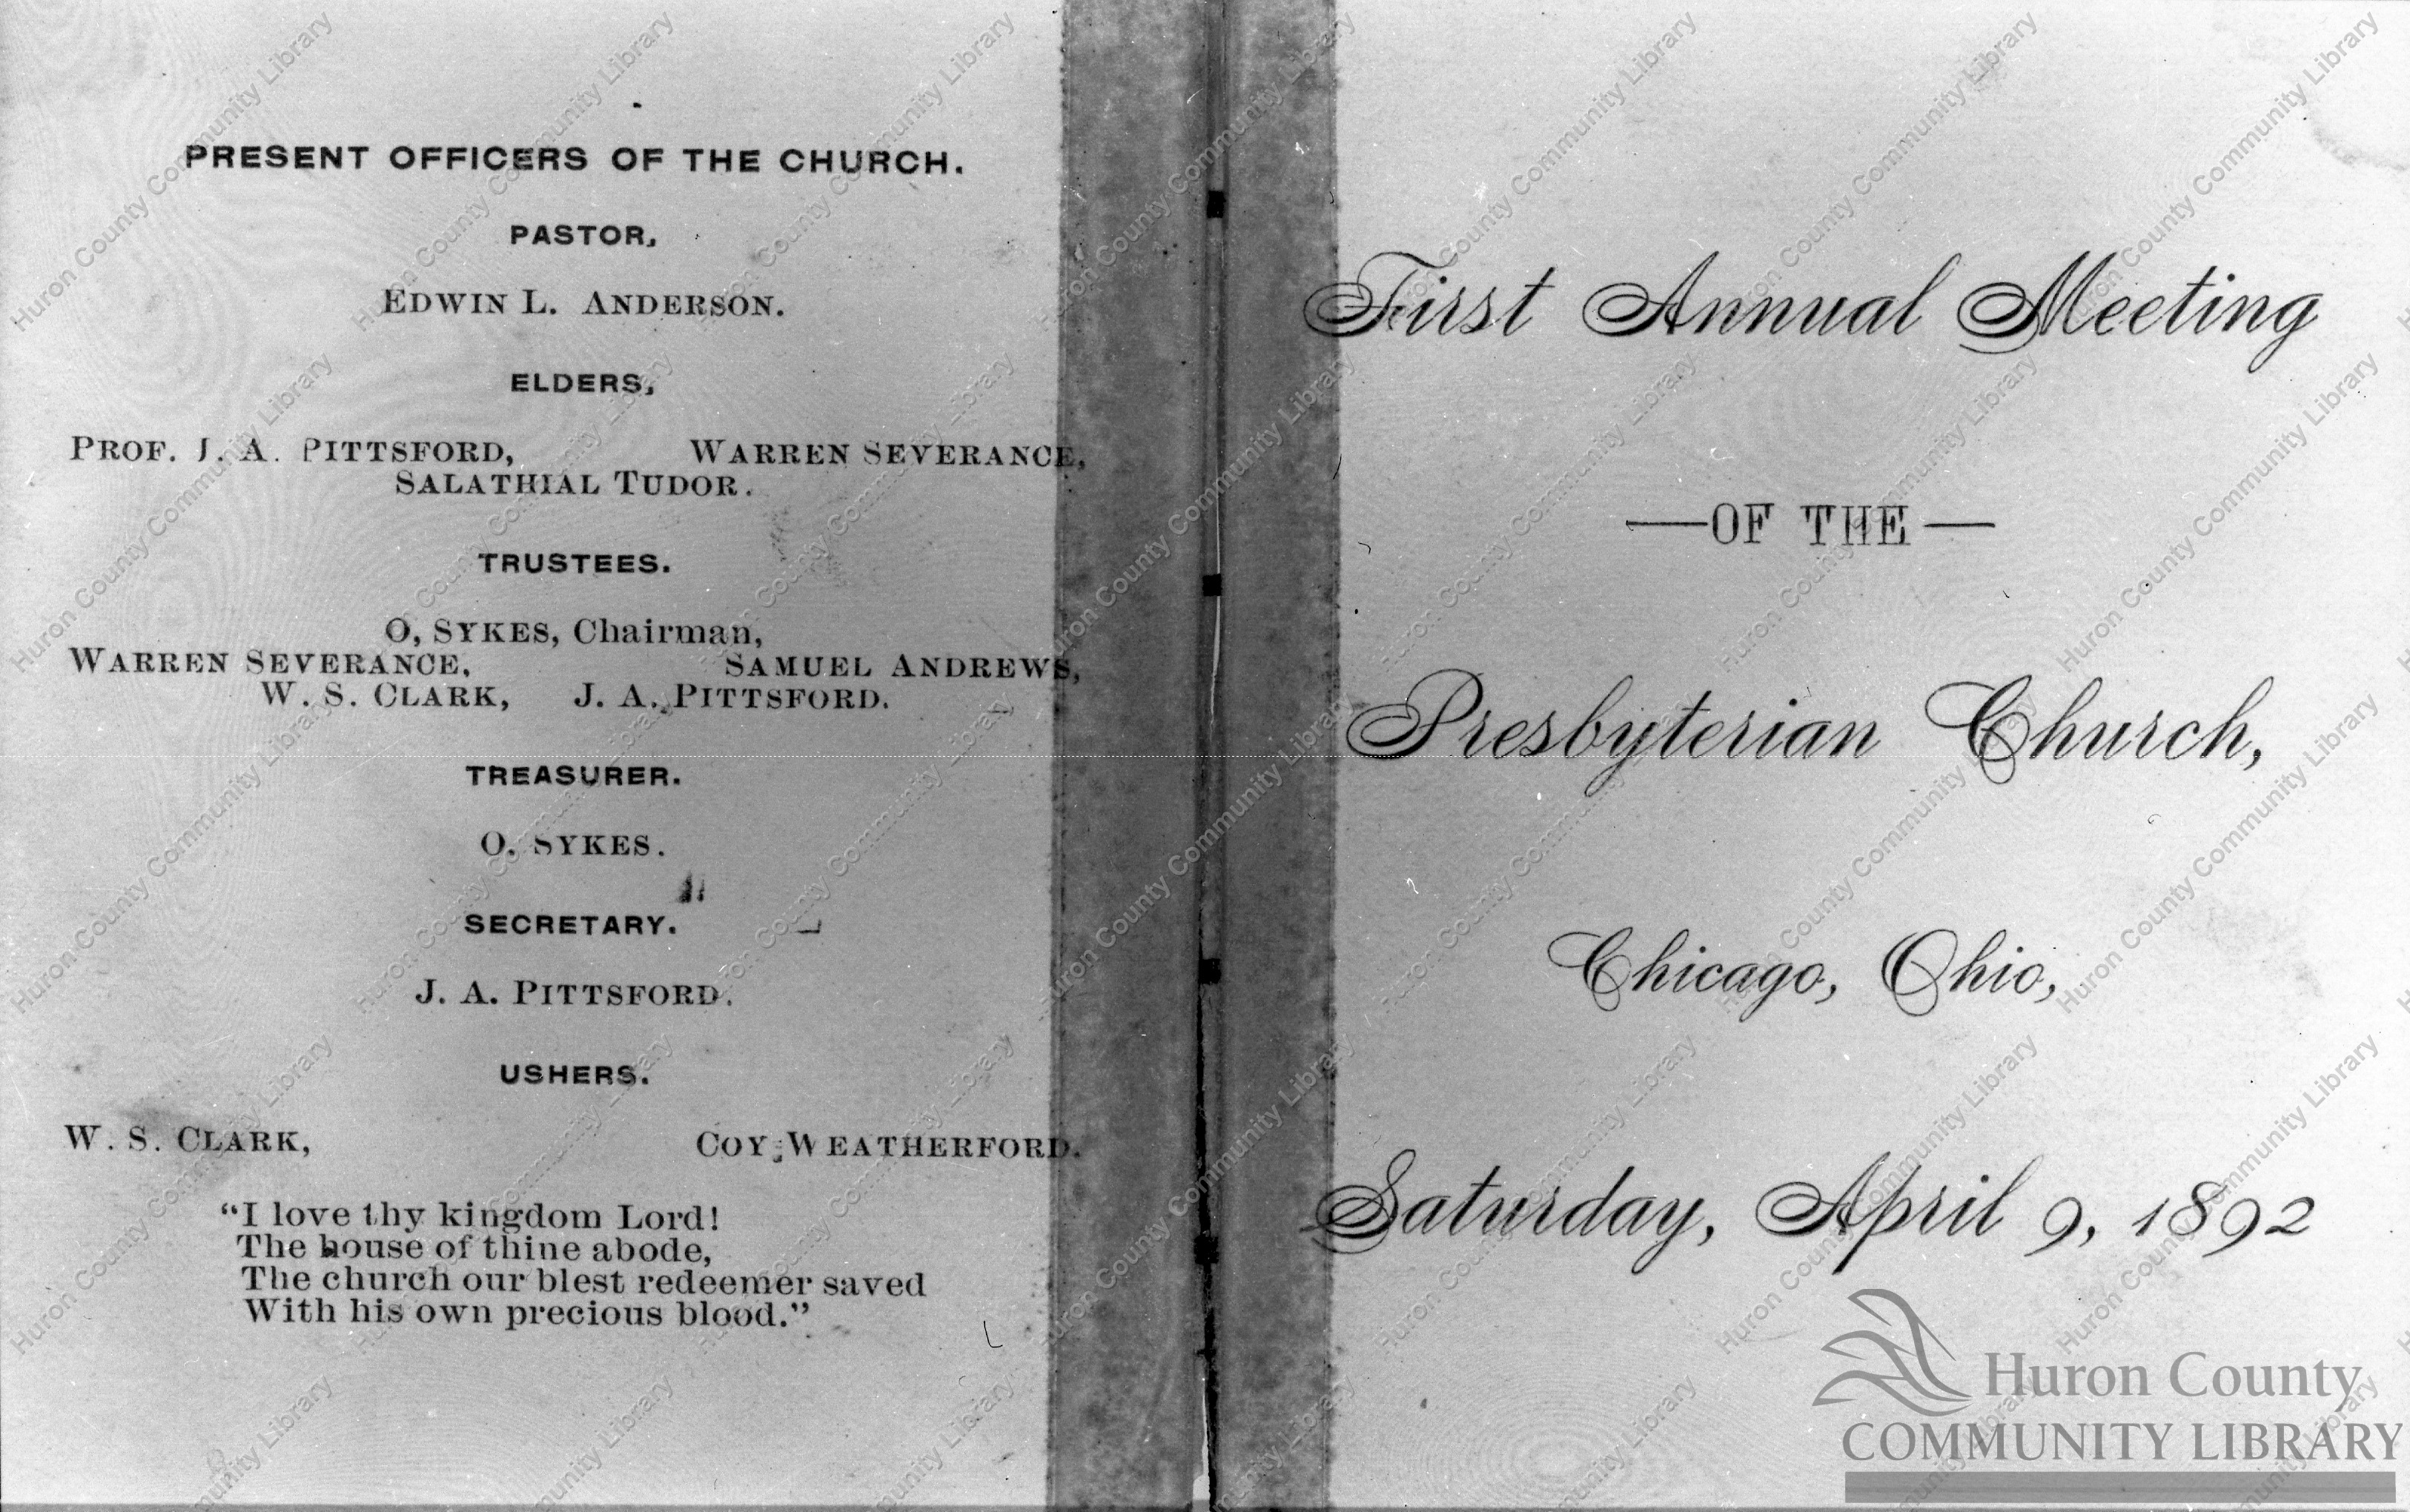 PRESENT OFFICERS OF THE CHURCH.
PASTOR,
EDWIN L. ANDERSON.
ELDERS,
PROF. J. A. PITTSFORD, WARREN SEVERANCE,
SALATHIAL TUDOR.
TRUSTEES.
O, SYKES, Chairman,
WARREN SEVERANCE, SAMUEL ANDREWS,
W. S. CLARK, J. A. PITTSFORD.
TREASURER.
O. SYKES.
SECRETARY.
J. A. PITTSFORD.
USHERS.
W. S. CLARK, COY WEATHERFORD.
"I love thy kingdom Lord!
The house of thine abode,
The church our blest redeemer saved
With his own precious blood."
First Annual Meeting
—OF THE—
Presbyterian Church,
Chicago, Ohio,
Saturday, April 9, 1892
Huron County
COMMUNITY LIBRARY